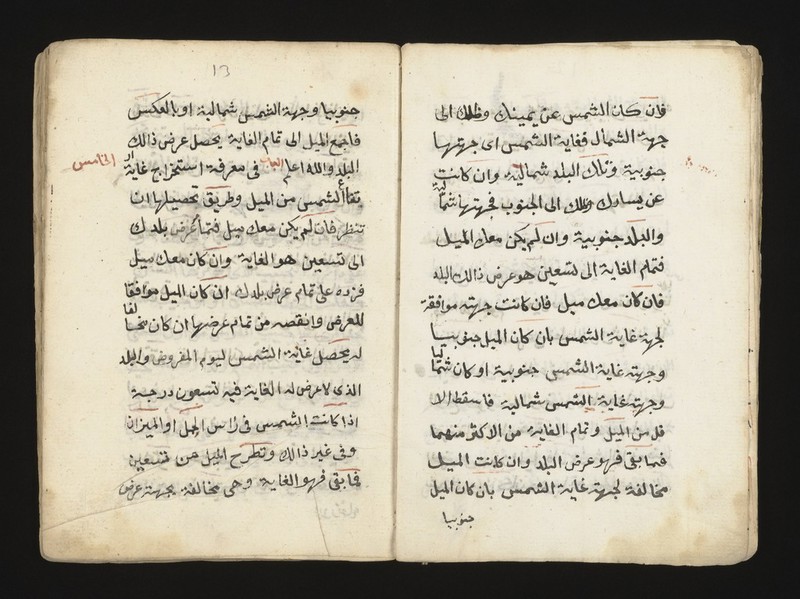 فان كان الشمس عن يمينك وظلك الى
جهة الشمال فغاية الشمس اى جهتها
جنوبية وتلك البلد شمالية وان كانت
عن يسارك وظلك الى الجنوب فجهتها شمالية
والبلد جنوبية وان لم يكن معك الميل
فتمام الغاية الى تسعين هو عرض ذالك البلد
فان كان معك ميل فان كانت جهته موافقة
لجهة غاية الشمس بان كان الميل جنوبيا
وجهته غاية الشمس جنوبية او كان شماليا
وجهته غاية الشمس شمالية فاسقط الا
قل من الميل وتمام الغاية من الاكثر منهما
فما بقى فهو عرض البلد وان كانت الميل
مخالفة لجهة غاية الشمس بان كان الميل
جنوبيا
13
جنوبيا وجهة الشمس شمالية او بالعكس
فاجمع الميل الى تمام الغاية يحصل عرض ذالك
البلد والله اعلم الباب الخامس فى معرفة استخراج غاية
الشمس من الميل وطريق تحصيلها ان
تنظر فان لم يكن معك ميل فتمام عرض بلدك
الى تسعين هو الغاية وان كان معك ميل
فزده على تمام عرض بلدك ان كان الميل موافقا
للعرض وانقصه من تمام عرضها ان كان مخالفا
له يحصل غاية الشمس ليوم المفروض والبلد
الذى لا عرض له الغاية فيه تسعون درجة
اذا كانت الشمس فى راس الحمل او الميزان
وفى غير ذالك وتطرح الميل من تسعين
فما بقى فهو الغاية وهى مخالفة لجهة عرض